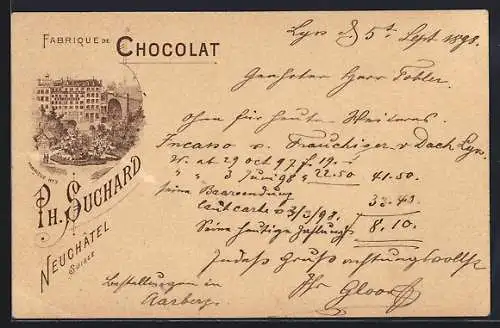 FABRIQUE DE CHOCOLAT
PH. SUCHARD
NEUCHÂTEL
SUISSE
Lyss d. 5t Sept 1898.
Geehrter Herr Tobler
Ohne für heute Weiteres
Incasso v. Frauchiger v Dach Lyss
at 29 oct 97 f. 19.-
" " 3 Juni 98 " 22.50 41.50.
seine Baarsendung
laut carte v 3/3/98. 33.40.
Seine heutige Zahlung 8.10.
Indess Gruss achtungsvollst
Ihr Gloor
Bestellungen in
Aarberg